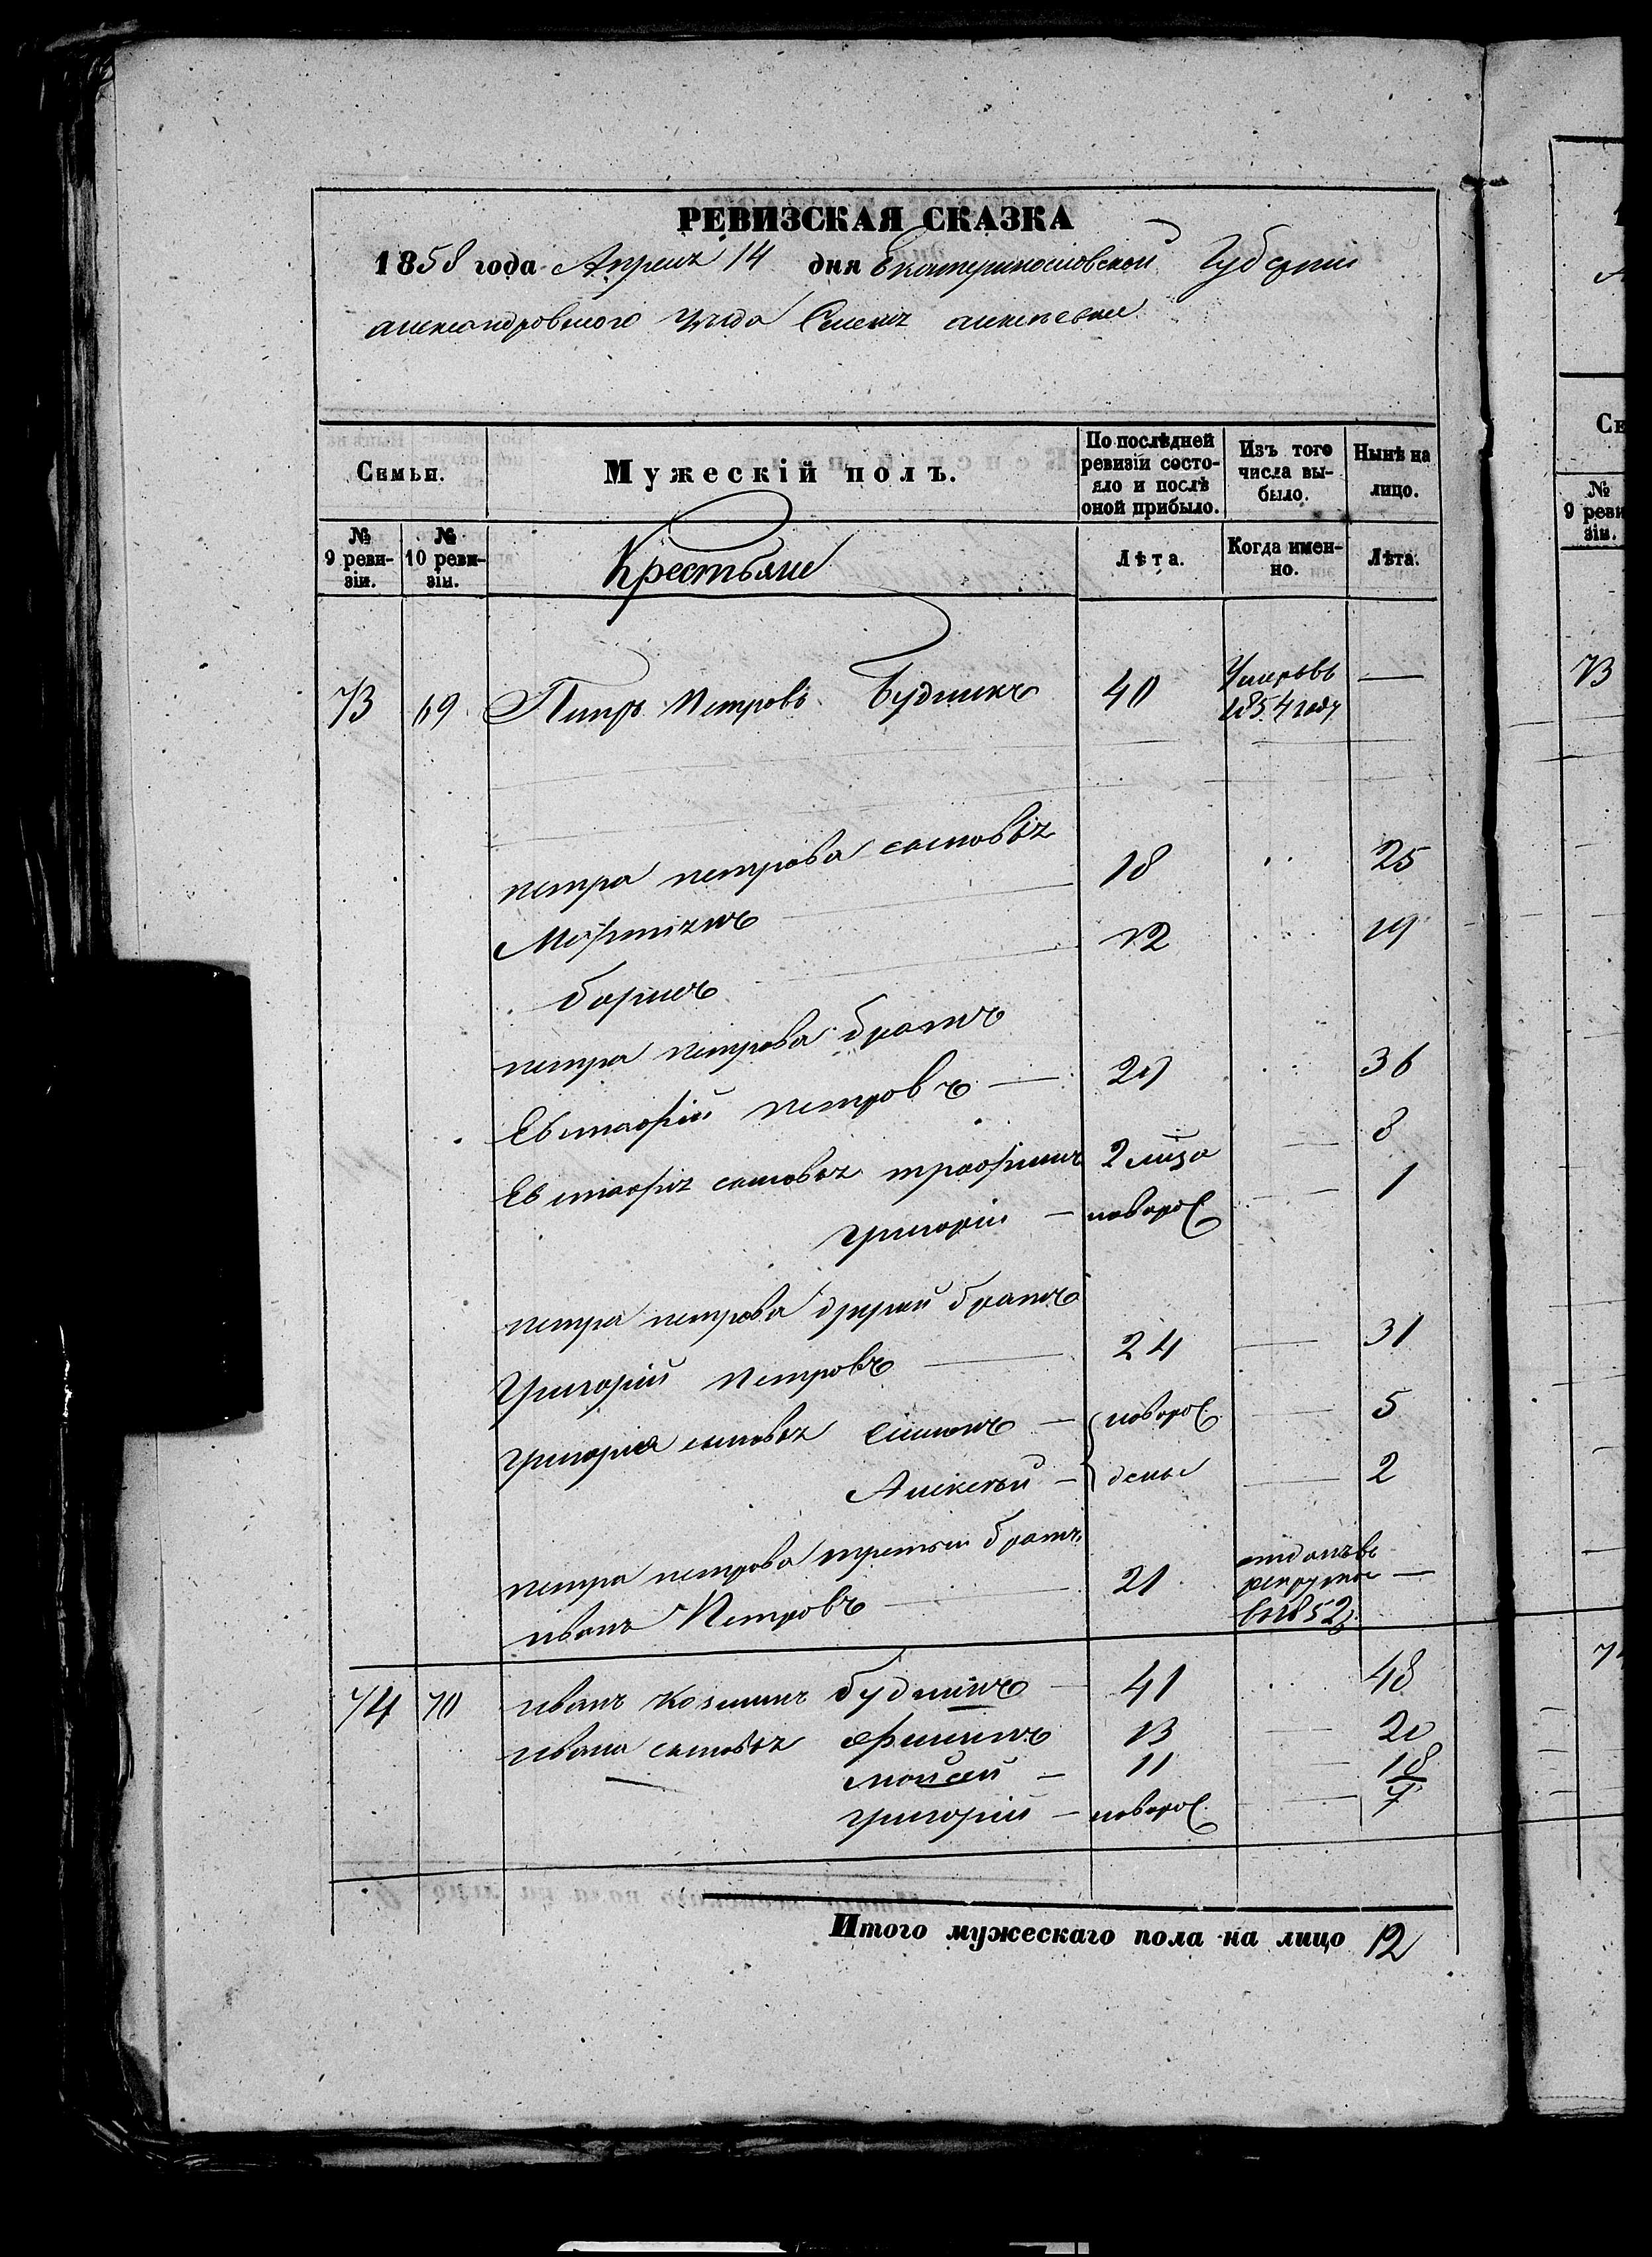 РЕВИЗСКАЯ СКАЗКА
1858 года Апреля 14 дня Екатеринославской Губернии
александровского уезда Селения алексеевки
Семьи.
Мужескій полъ.
По послѣдней ревизіи состояло и послѣ оной прибыло.
Изъ того числа выбыло.
Нынѣ на лицо.
№ 9 ревизіи.
№ 10 ревизіи.
Крестьяне
Лѣта.
Когда именно.
Лѣта.
73 69 Петръ Петровъ Будникъ 40 Умеръ въ 1854 году —
петра петрова сыновья
Мартинъ 18 25
борисъ 12 19
петра петрова братъ
Евстафій петровъ — 29 36
Евстафія сыновья трофимъ 2 — 8
григорій — новорож — 1
петра петрова другий братъ
Григорій Петровъ — 24 — 31
григория сыновья Симонъ — новорож — 5
Алексѣй — — 2
петра петрова третьи братъ
иванъ Петровъ — 21 отданъ въ рекруты в 1852 —
74 70 иванъ Козминъ будникъ — 41 48
ивана сыновья филипъ 13 — 20
моисей — 11 — 18
григорій — новорож — 7
Итого мужескаго пола на лицо 12
№ 9 реви-
зіи.
73